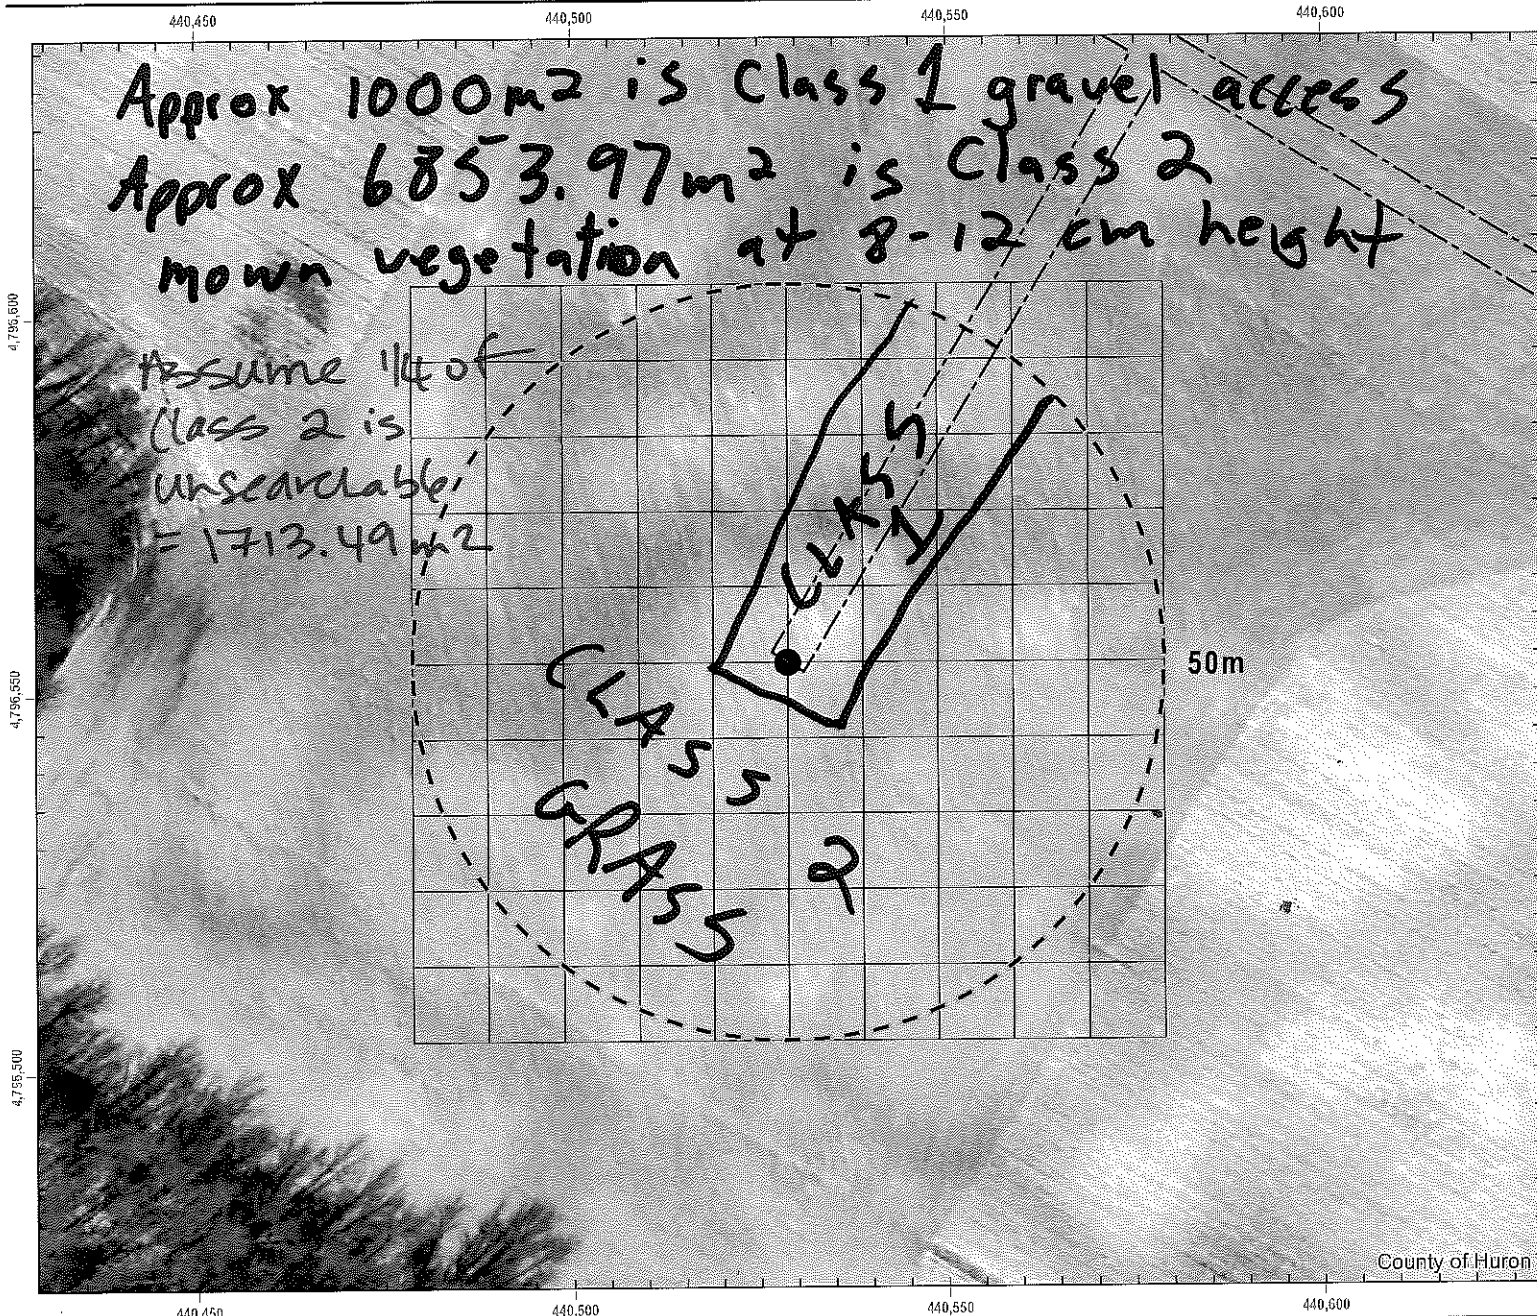 440,450 440,500 440,550 440,600
Approx 1000m2 is Class 1 gravel access
Approx 6853.97m2 is Class 2
mown vegetation at 8-12 cm height
4,795,600
Assume 1/4 of
Class 2 is
unsearchable
= 1713.49 m2
1
CLASS
GRASS
2
50m
County of Huron
440,450 440,500 440,550 440,600